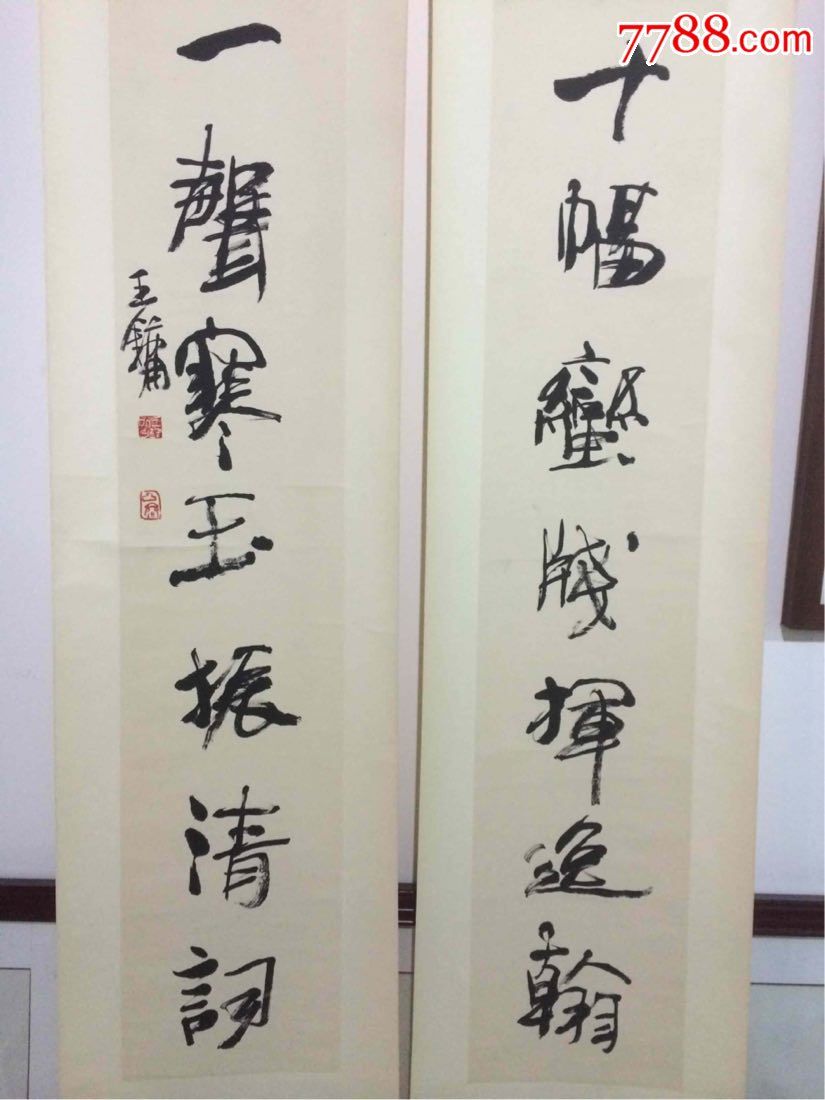 7788.com
十幅蠻牋揮逸翰
一聲寒玉振清詞
王鏞